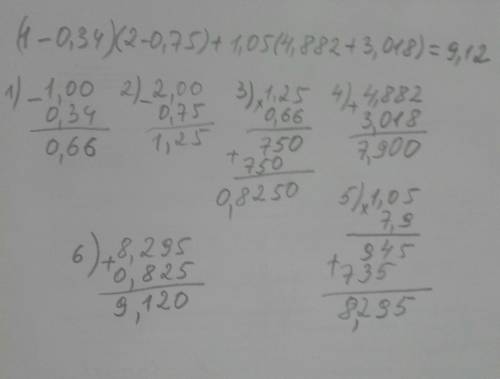 (1-0,34)(2-0,75)+1,05(4,882+3,018)=9,12
1) - 1,00
0,34
0,66
2) - 2,00
0,75
1,25
3) × 1,25
0,66
750
+ 750
0,8250
4) + 4,882
3,018
7,900
5) × 1,05
7,9
945
+ 735
8,295
6) + 8,295
0,825
9,120